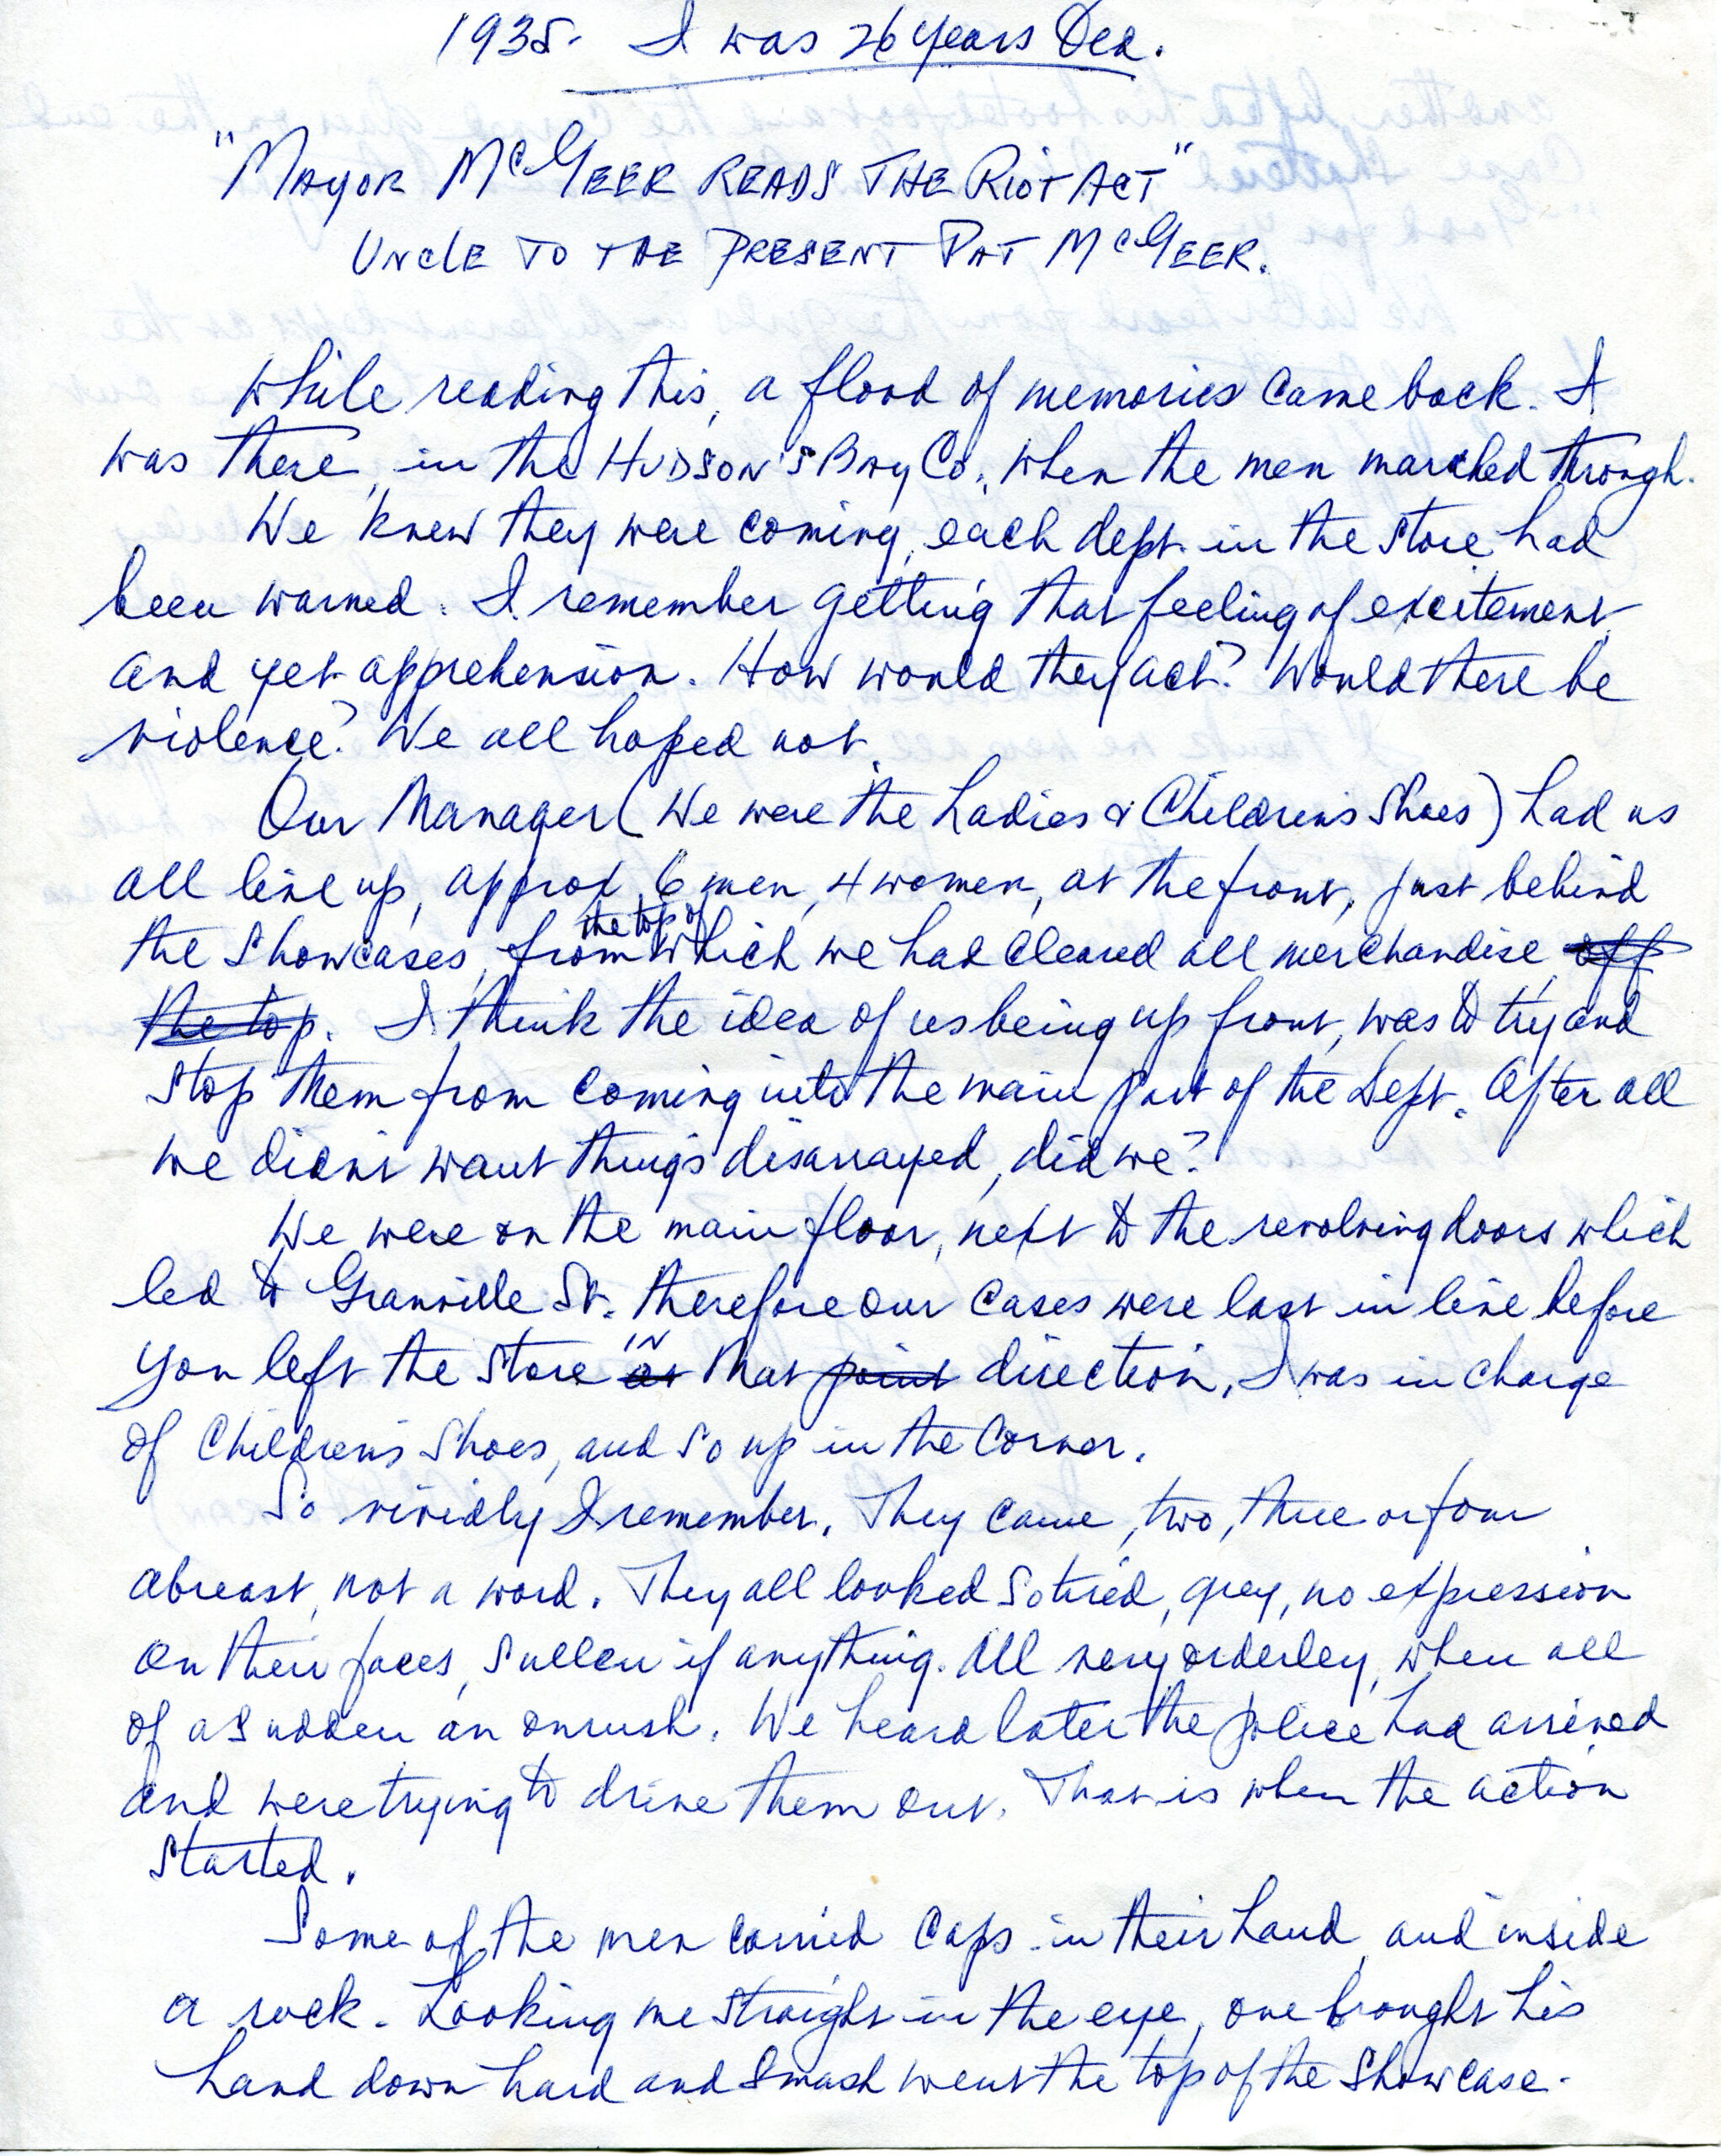 1935. I was 26 years Old.
"MAYOR McGEER READS THE RIOT ACT"
UNCLE TO THE PRESENT PAT McGEER.
While reading this, a flood of memories came back. I
was there, in the HUDSON'S Bay Co., when the men marched through.
We knew they were coming, each dept. in the store had
been warned. I remember getting that feeling of excitement
and yet apprehension. How would they act? Would there be
violence? We all hoped not.
Our Manager (We were the Ladies & Children's Shoes) had us
all line up, approx. 6 men, 4 women, at the front, just behind
the showcases, from the top of which we had cleared all merchandise, off
the top. I think the idea of us being up front, was to try and
stop them from coming into the main part of the Dept. After all
we didn't want things disarrayed, did we?
We were on the main floor, next to the revolving doors which
led to Granville St. therefore our cases were last in line before
you left the store at IN that point direction, I was in charge
of Children's Shoes, and so up in the corner.
So vividly I remember. They came, two, three or four
abreast, not a word. They all looked so tired, grey, no expression
on their faces, sullen if anything. All very orderley, when all
of a sudden an onrush. We heard later the police had arrived
and were trying to drive them out. That is when the action
started.
Some of the men carried caps in their hand, and inside
a rock. Looking me straight in the eye, one brought his
hand down hard and smash went the top of the showcase.